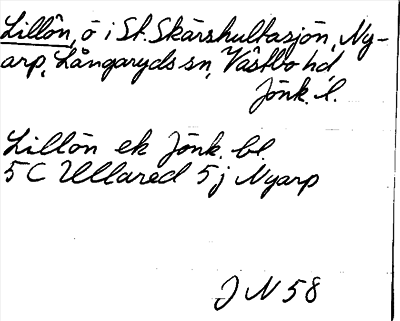 Lillön, ö i St. Skärshultasjön, Ny-
arp, Långaryds sn, Västbo hd
Jönk. l.
Lillön ek Jönk. bl.
5 C Ullared 5 j Nyarp
J N 58